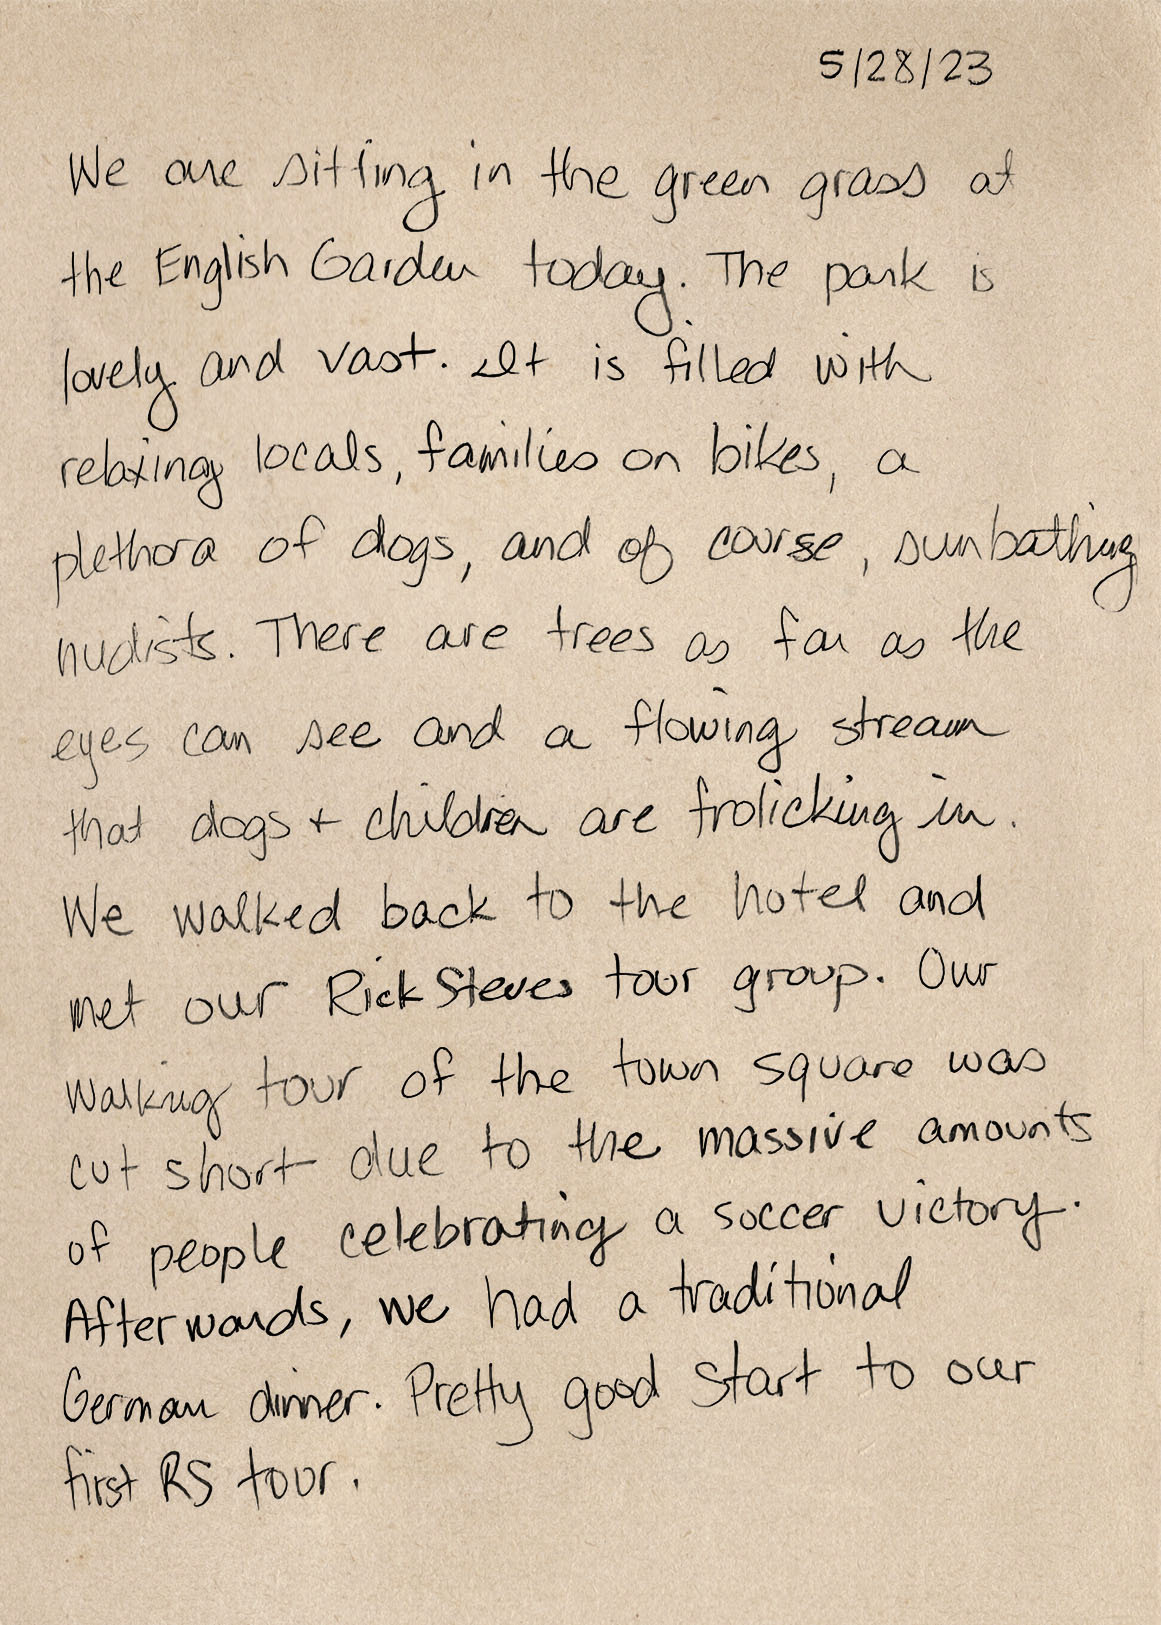 5/28/23
We are sitting in the green grass at
the English Garden today. The park is
lovely and vast. It is filled with
relaxing locals, families on bikes, a
plethora of dogs, and of course, sunbathing
nudists. There are trees as far as the
eyes can see and a flowing stream
that dogs + children are frolicking in.
We walked back to the hotel and
met our Rick Steves tour group. Our
walking tour of the town square was
cut short due to the massive amounts
of people celebrating a soccer victory.
Afterwards, we had a traditional
German dinner. Pretty good start to our
first RS tour.